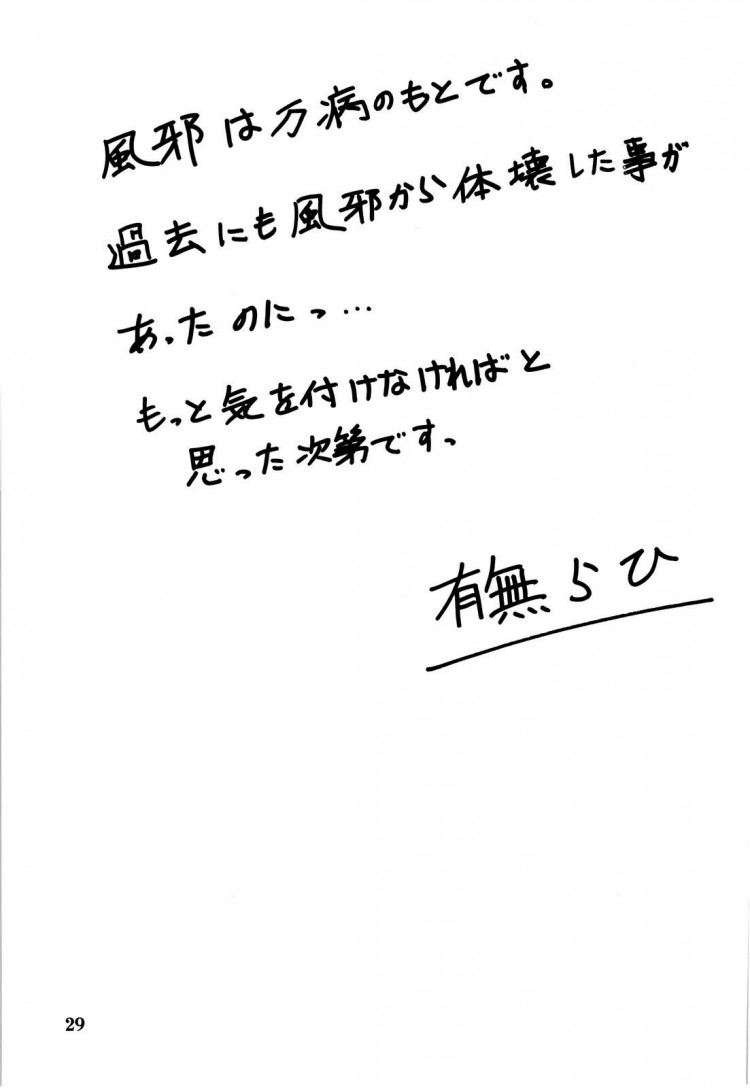 風邪は万病のもとです。
過去にも風邪から体壊した事が
あったのにっ…
もっと気を付けなければと
思った次第ですっ
有無らひ
29